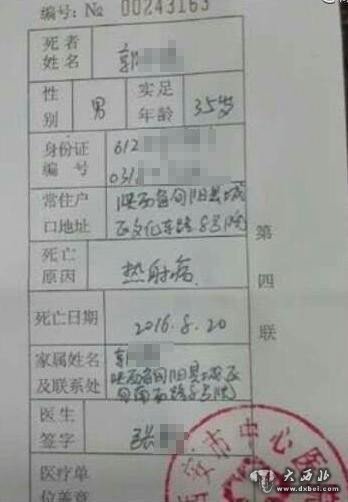 编号:№ 00243163
死者
姓名
郭
性
别
男
实足
年龄
35岁
身份证
编号
612
031
常住户
口地址
陕西省旬阳县城
区文化东路8号院
死亡
原因
热射病
死亡日期
2016.8.20
家属姓名
及联系处
郭
陕西省旬阳县城区
医生
签字
张
医疗单
位盖章
第四联
安市中心医
大西北
www.dxbei.com